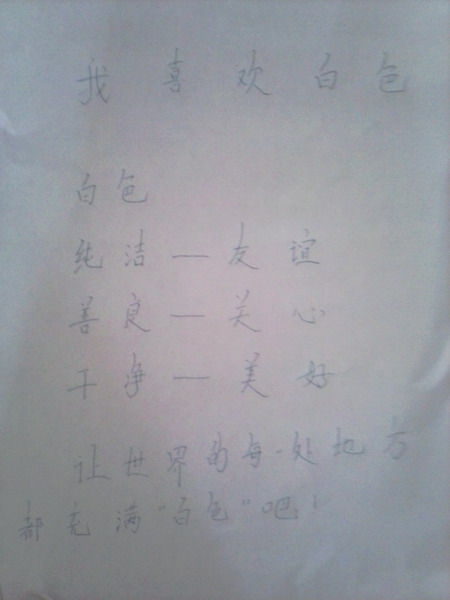 我喜欢白色
白色
纯洁—友谊
善良—关心
干净—美好
让世界的每一处地方
都充满“白色”吧！